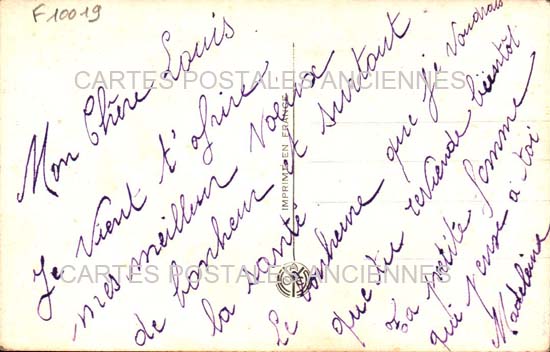 F10019
Mon Chère Louis
Je vient t'ofrire
mes meilleur Voeux
de bonheur et surtout
la santé
Le bonheure que je Voudrais
que tu reviende bientôt
Ta petite femme
qui pense a toi
Madeleine
IMPRIMÉ EN FRANCE
CARTES POSTALES ANCIENNES
CARTES POSTALES ANCIENNES